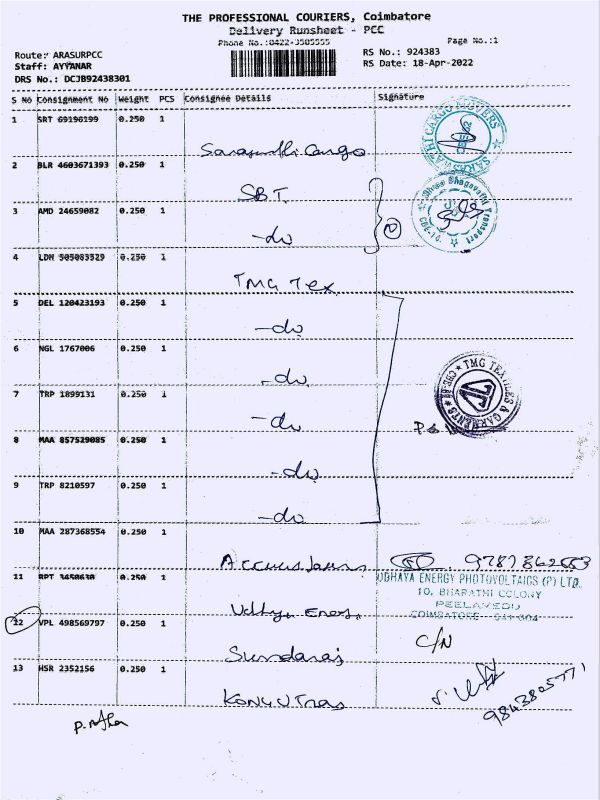 THE PROFESSIONAL COURIERS, Coimbatore
Delivery Runsheet - PCC
Phone No.:0422-3505555
Page No.:1
Route: ARASURPCC
Staff: AYYANAR
DRS No.: DCJB92438301
RS No.: 924383
RS Date: 18-Apr-2022
S No Consignment No Weight PCS Consignee Details Signature
1 SRT 69196199 0.250 1
2 BLR 4603671393 0.250 1
SBT
3 AMD 24659082 0.250 1
-do
4 LDH 505083529 0.250 1
TMG Tex
5 DEL 120423193 0.250 1
-do
6 NGL 1767006 0.250 1
-do
7 TRP 1899131 0.250 1
-do
8 MAA 857529085 0.250 1
-do
9 TRP 8210597 0.250 1
-do
TMG TEXTILES & GARMENTS
10 MAA 287368554 0.250 1
11 RPT 3450630 0.250 1
UDHAYA ENERGY PHOTOVOLTAICS (P) LTD.
10, BHARATHI COLONY
PEELAMEDU
COIMBATORE - 641 004
12 VPL 498569797 0.250 1
Sundaraj
C/N
13 HSR 2352156 0.250 1
9843805771